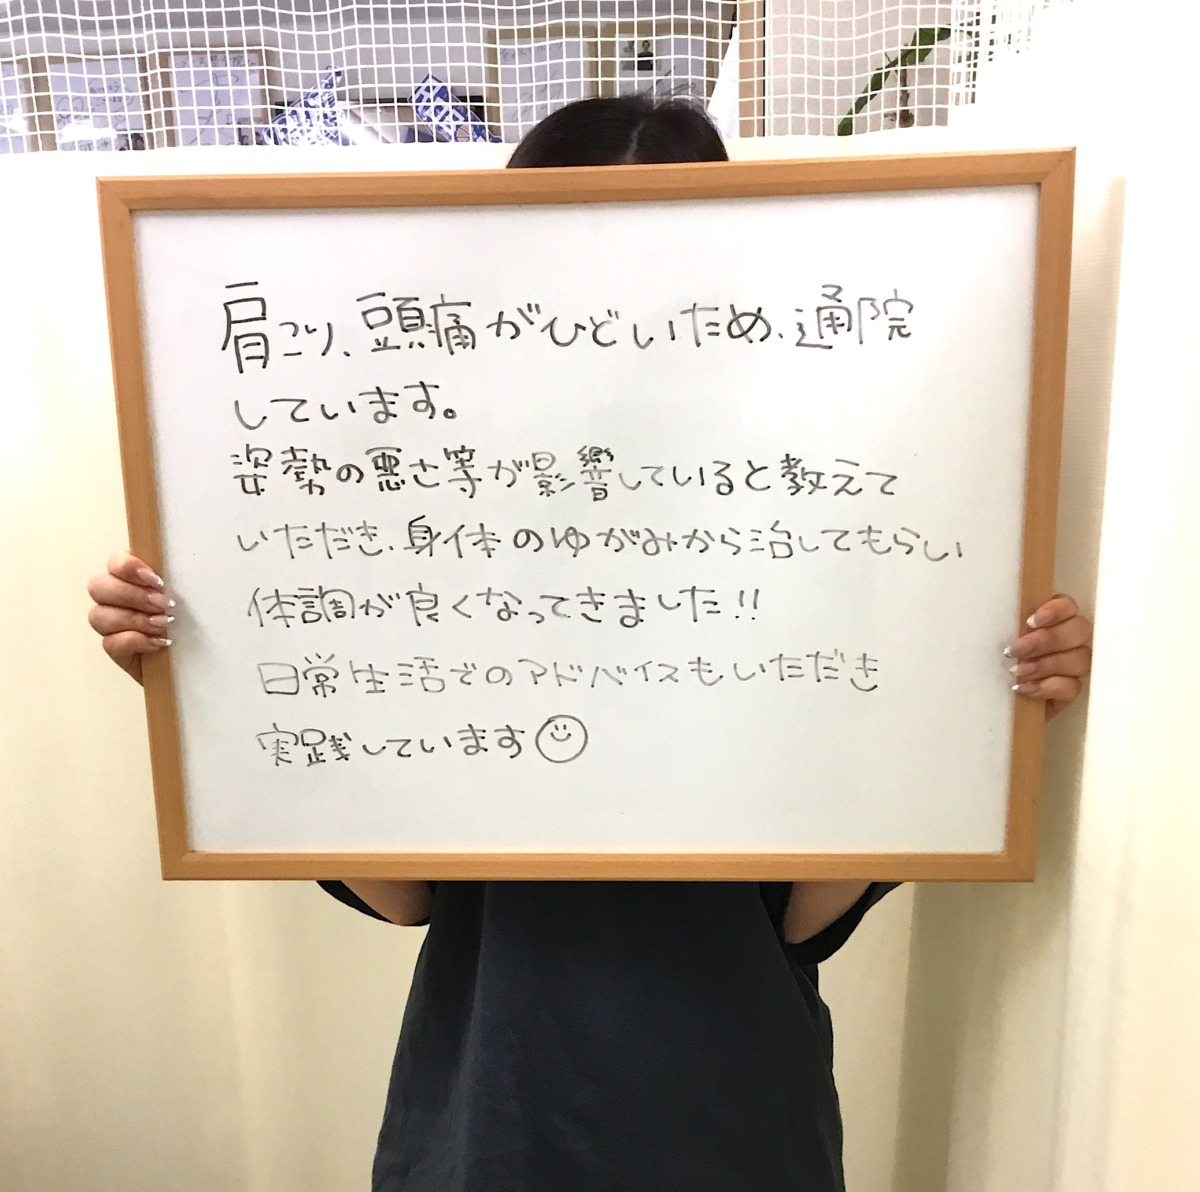 肩こり、頭痛がひどいため、通院
しています。
姿勢の悪さ等が影響していると教えて
いただき、身体のゆがみから治してもらい
体調が良くなってきました!!
日常生活でのアドバイスもいただき
実践しています